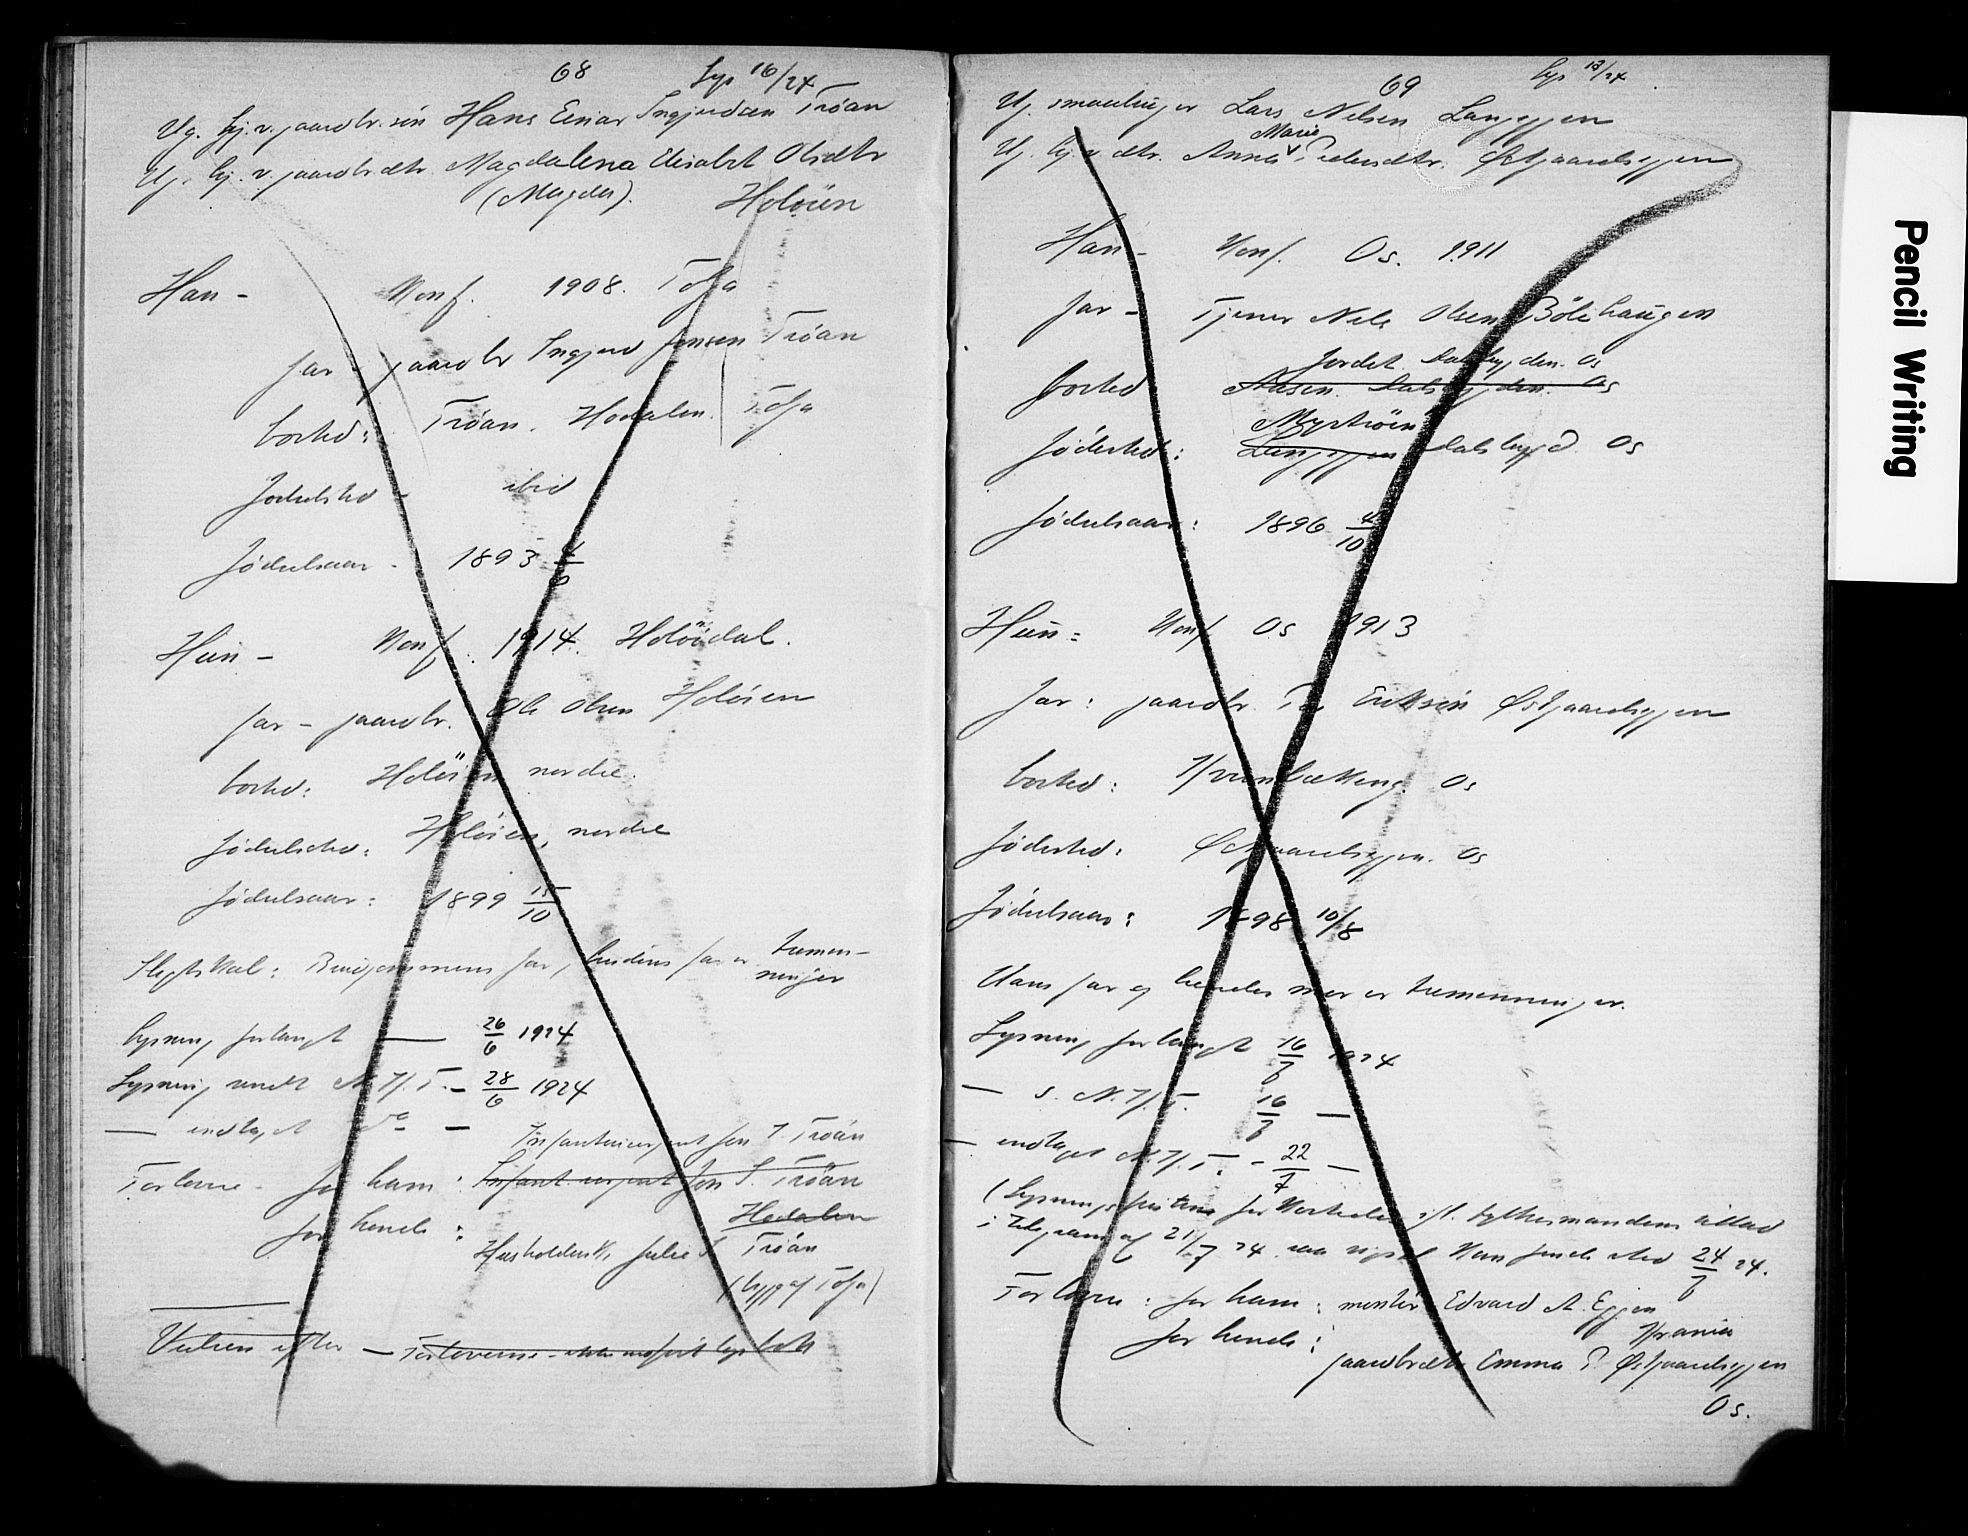 68 Lys 16/24
Ug. hj.v. gaardbr.søn Hans Einar Ingjerdsen Trøan
Ug. hj.v. gaardbrdtr. Magdalena Elisabet Olsdtr
(Magda). Holøien
Han - Konf. 1908. Tolga
far - gaardbr Ingjerd Jonsen Trøan
bosted: Trøan. Hodalen. Tolga
Fødested - ibid
Fødselsaar - 1893 4/6
Hun - Konf. 1914. Holøidal.
far - gaardbr. Ole Olsen Holøien
bosted: Holøien nordre.
Fødselssted: Holøien, nordre
Fødselsaar: 1899 15/10
Slegtskab: Brudgommens far, brudens far er tremen-
ninger
Lysning forlangt — 26/6 1924
Lysning sendt N.H.T. - 28/6 1924
— indtaget do -
Infanterisergeant Jon I. Trøan
Forlovere - for ham: Infant. sergeant Jon I. Trøan
Hodalen
for hende: Husholdersk. Julie I. Trøan
(bygg af Tolga)
Vielsen efter — Forloverne
69 Lys 13/24
Ug. smaabruger Lars Nelsen Langeggen
Marie
Ug. hj.v. dtr. Anna Pedersdtr. Østgaardseggen
Han - Konf. Os. 1911
far - Tjener Nels Olsen Bölehaugen
Jordet Dalsbygden. Os
bosted Aasen. Dalsbygden. Os
Myrtrøen
fødested: Langeggen Dalsbygd. Os
fødselsaar: 1896 4/10
Hun: Konf Os 1913
Far: gaardbr. Per Eriksen Østgaardseggen
bosted: Os
Fødested: Østgaardseggen. Os
Fødselsaar: 1898 10/8
Hans far og hendes mor er tremenninger.
Lysning forlangt 16/7 1924
— s. N.H.T. 16/7 —
— indtaget N.H.T. - 22/7 —
(Lysnings
i telegram af 21/7 24. saa vigsel kan finde sted 24/7 24.
Forlovere: for ham: montør Edvard A. Eggen
for hende:
gaardbrdtr Emma P. Østgaardseggen
Os.
Pencil Writing